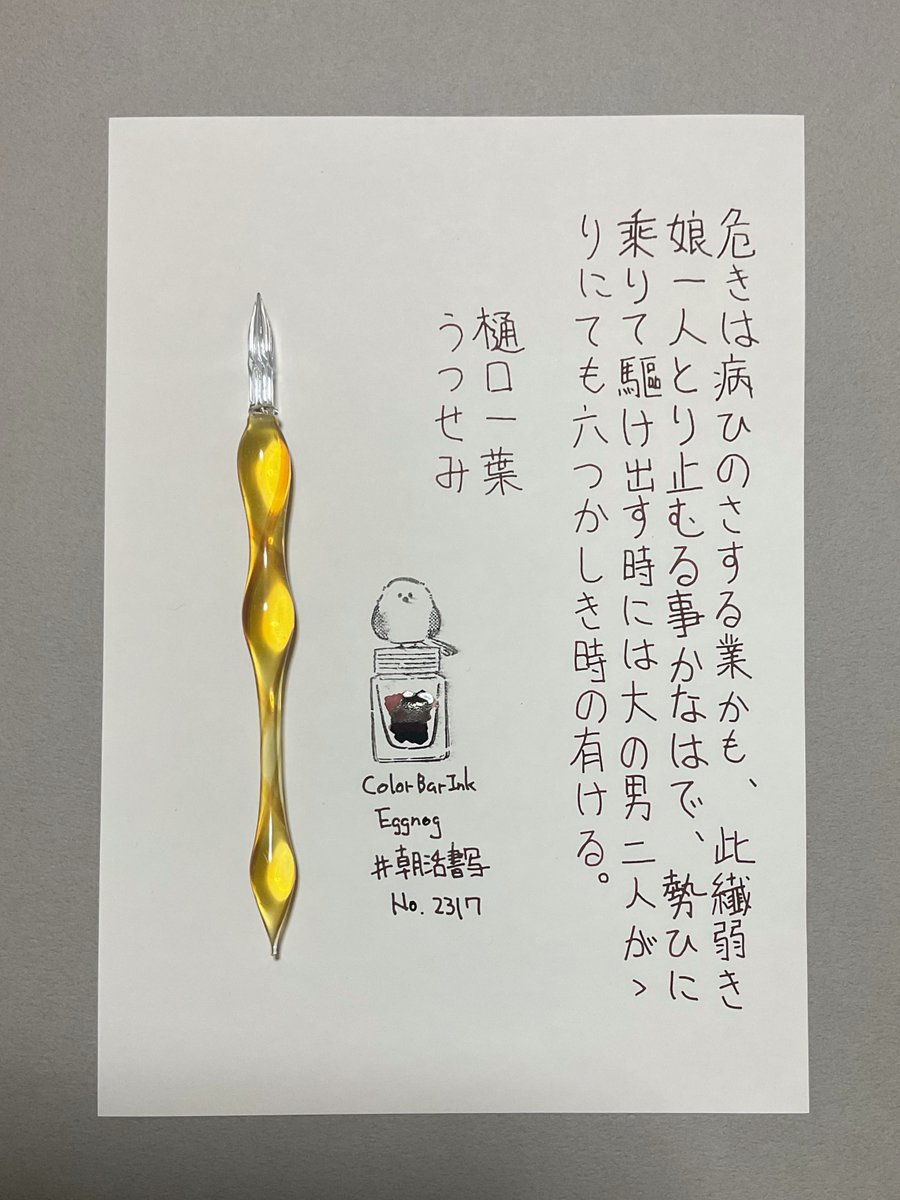 危きは病ひのさする業かも、此繊弱き
娘一人とり止むる事かなはで、勢ひに
乗りて駆け出す時には大の男二人がゝ
りにても六つかしき時の有ける。
樋口一葉
うつせみ
Color Bar Ink
Eggnog
#朝活書写
No. 2317